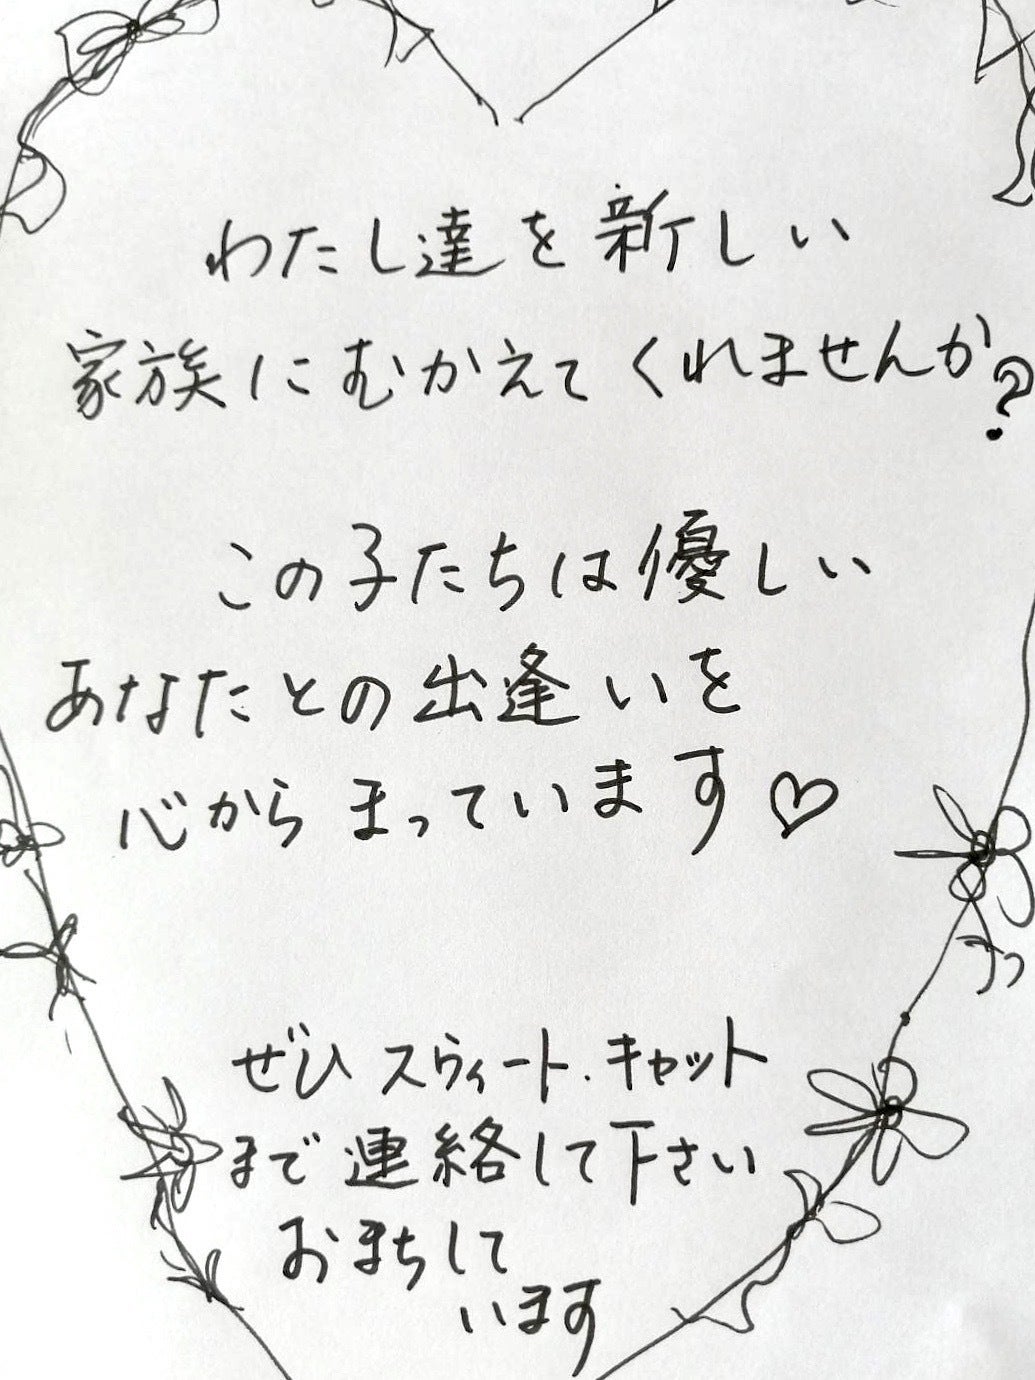 わたし達を新しい
家族にむかえてくれませんか?
この子たちは優しい
あなたとの出逢いを
心からまっています♡
ぜひスウィート.キャット
まで連絡して下さい
おまちして
います